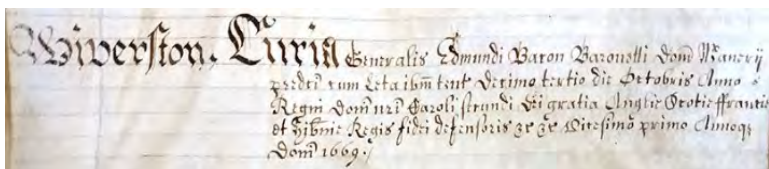 Wiverston. Curia Generalis Edmundi Bacon Baronetti Domi Manerij
predci cum Leta ibm tent Decimo tertio die Octobris Anno
Regni Domi nri Caroli secundi Dei gratia Anglie Scotie ffrancie
et Hibnie Regis fidei defensoris &c &c Vicesimo primo Annoqz
Domi 1669.